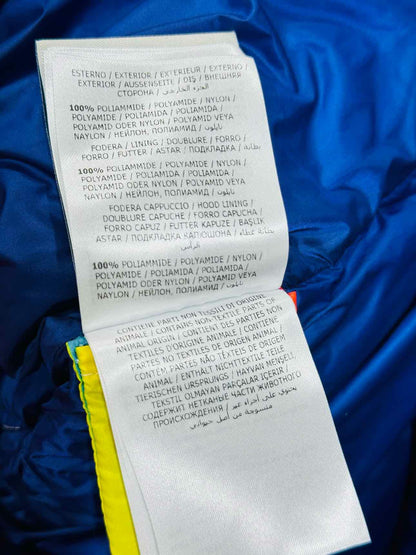 ESTERNO / EXTERIOR / EXTERIEUR / EXTERNO /
EXTERIOR / AUSSENSEITE / DIŞ / ВНЕШНЯЯ
СТОРОНА / الجزء الخارجي
100% POLIAMMIDE / POLYAMIDE / NYLON /
POLYAMIDE / POLIAMIDA / POLIAMIDA /
POLYAMID ODER NYLON / POLYAMID VEYA
NAYLON / НЕЙЛОН, ПОЛИАМИД / نايلون
FODERA / LINING / DOUBLURE / FORRO /
FORRO / FUTTER / ASTAR / ПОДКЛАДКА / بطانة
100% POLIAMMIDE / POLYAMIDE / NYLON /
POLYAMIDE / POLIAMIDA / POLIAMIDA /
POLYAMID ODER NYLON / POLYAMID VEYA
NAYLON / НЕЙЛОН, ПОЛИАМИД / نايلون
FODERA CAPPUCCIO / HOOD LINING /
DOUBLURE CAPUCHE / FORRO CAPUCHA /
FORRO CAPUZ / FUTTER KAPUZE / BAŞLIK
ASTAR / ПОДКЛАДКА КАПЮШОНА / بطانة غطاء
الرأس
100% POLIAMMIDE / POLYAMIDE / NYLON /
POLYAMIDE / POLIAMIDA / POLIAMIDA /
POLYAMID ODER NYLON / POLYAMID VEYA
NAYLON / НЕЙЛОН, ПОЛИАМИД / نايلون
CONTIENE PARTI NON TESSILI DI ORIGINE
ANIMALE / CONTAINS NON TEXTILE PARTS OF
ANIMAL ORIGIN / CONTIENT DES PARTIES NON
TEXTILES D'ORIGINE ANIMALE / CONTIENE
PARTES NO TEXTILES DE ORIGEN ANIMAL /
CONTÉM PARTES NÃO TÊXTEIS DE ORIGEM
ANIMAL / ENTHÄLT NICHTTEXTILE TEILE
TIERISCHEN URSPRUNGS / HAYVAN MENŞELİ
TEKSTIL OLMAYAN PARÇALAR İÇERİR /
СОДЕРЖИТ НЕТКАНЫЕ ЧАСТИ ЖИВОТНОГО
ПРОИСХОЖДЕНИЯ / يحتوي على أجزاء غير
منسوجة من أصل حيواني